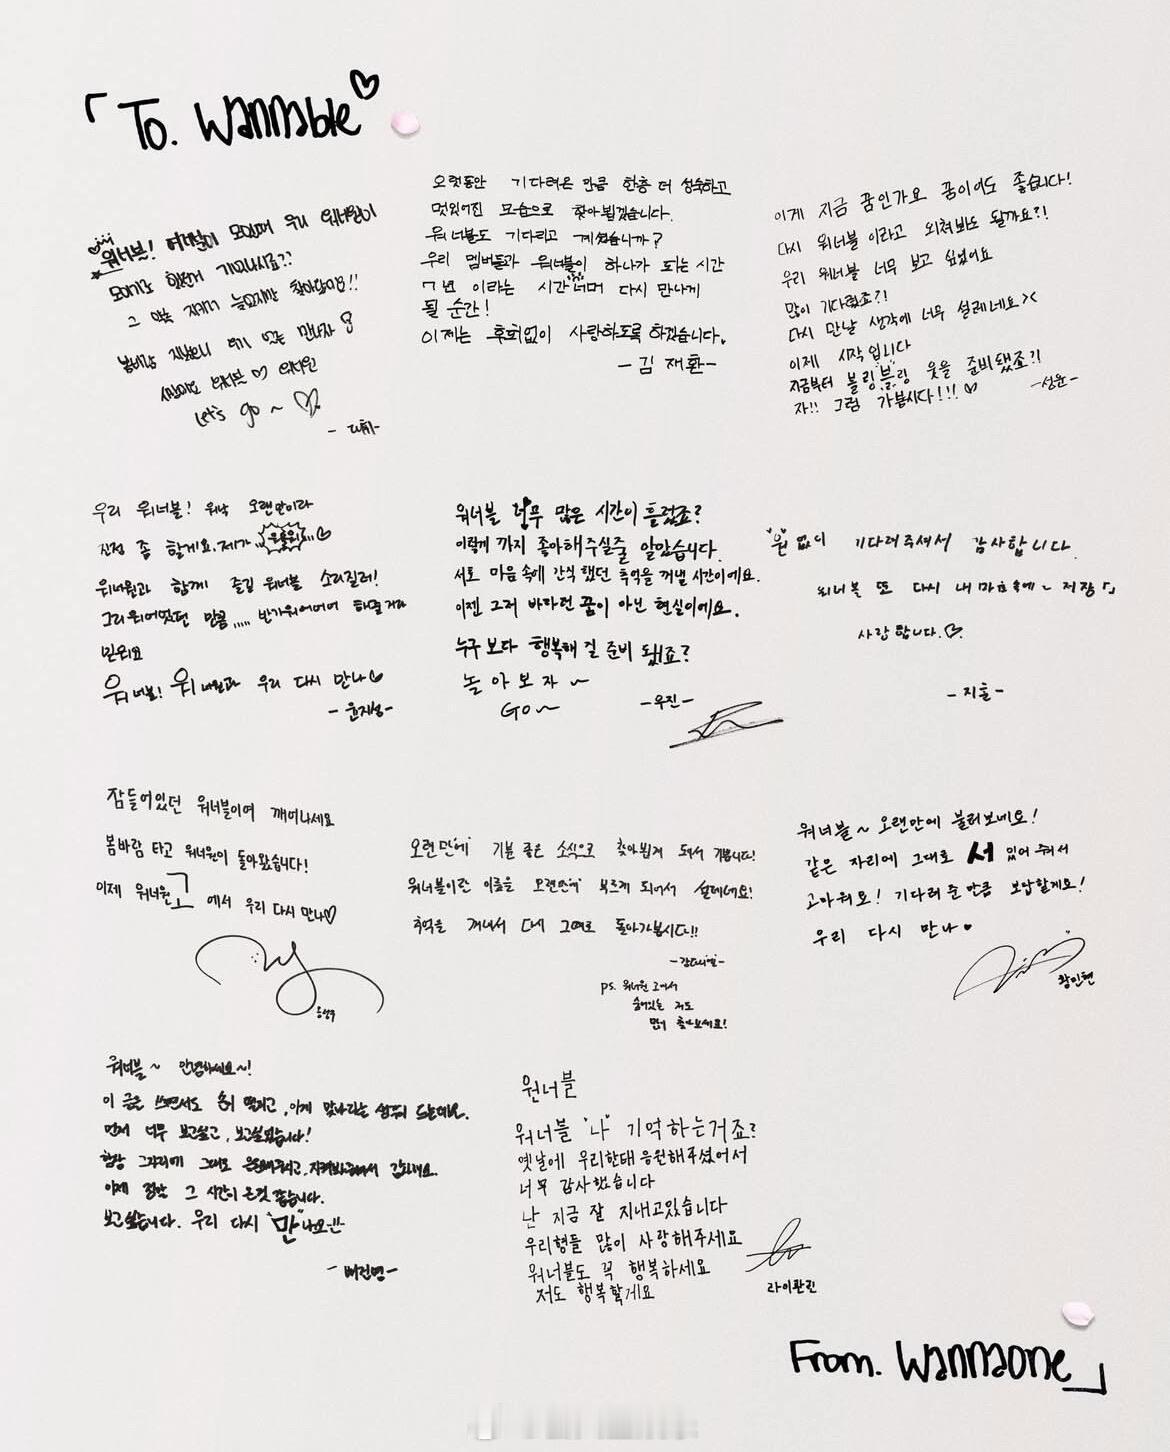 「To. Wannable♡
워너블! 여러분이 모여서 우리 워너원이
그 약속 지키러 늦었지만 찾아왔어요!!
워너블 ♡ 워너원
Let's go~ ♡
-대휘-
오랫동안 기다려온 만큼 한층 더 성숙하고
멋있어진 모습으로 찾아뵙겠습니다.
워너블도 기다리고 계셨습니까?
우리 멤버들과 워너블이 하나가 되는 시간
7년 이라는 시간 너머 다시 만나게
될 순간!
이제는 후회없이 사랑하도록 하겠습니다.
-김재환-
이게 지금 꿈인가요 꿈이어도 좋습니다!
다시 워너블 이라고 외쳐봐도 될까요?!
우리 워너블 너무 보고 싶었어요
많이 기다렸죠?!
다시 만날 생각에 너무 설레네요><
이제 시작입니다
지금부터 블링블링 웃을 준비됐죠?!
자!! 그럼 가봅시다!!! ♡
-성운-
우리 워너블! 워낙 오랜만이라
진정 좀 할게요. 제가 ♡
워너원과 함께 즐길 워너블 소리질러!
그리워어했던 만큼,,,,, 반가워어어어 해줄거라
믿어요
워너블! 워너원과 우리 다시 만나♡
-윤지성-
워너블 너무 많은 시간이 흘렀죠?
이렇게 까지 좋아해주실줄 알았습니다.
서로 마음속에 간직했던 추억을 꺼낼 시간이에요.
이젠 그저 바라던 꿈이 아닌 현실이에요.
누구보다 행복해 질 준비 됐죠?
놀아보자~
GO~
-우진-
"원"없이 기다려주셔서 감사합니다.
워너블 또 다시 내 마음속에~ 저장
사랑합니다.♡
-지훈-
잠들어있던 워너블이여 깨어나세요
봄바람 타고 워너원이 돌아왔습니다!
이제 워너원고에서 우리 다시 만나♡
옹성우
오랜만에 기분 좋은 소식으로 찾아뵙게 돼서 기쁩니다!
워너블이란 이름을 오랜만에 부르게 되어서 설레네요!
추억을 꺼내서 다시 그때로 돌아가봅시다!!
-강다니엘-
ps. 워너원 고에서
숨어있는 저도
많이 찾아보세요!
워너블~ 오랜만에 불러보네요!
같은 자리에 그대로 서 있어 줘서
고마워요! 기다려준 만큼 보답할게요!
우리 다시 만나♥
황민현
워너블~ 안녕하세요~!
이 글을 쓰면서도 손이 떨리고, 이게 맞나라는 생각이 드는데요.
먼저 너무 보고싶고, 보고싶었습니다!
항상 그자리에 그대로 응원해주시고, 지켜봐주셔서 감사해요.
이제 정말 그 시간이 온것 같습니다.
보고싶습니다. 우리 다시 "만"나요!!!
-배진영-
워너블
워너블 "나" 기억하는거죠?
옛날에 우리한테 응원해주셨어서
너무 감사했습니다
난 지금 잘 지내고있습니다
우리형들 많이 사랑해주세요
워너블도 꼭 행복하세요
저도 행복할게요
라이관린
From. Wannaone」